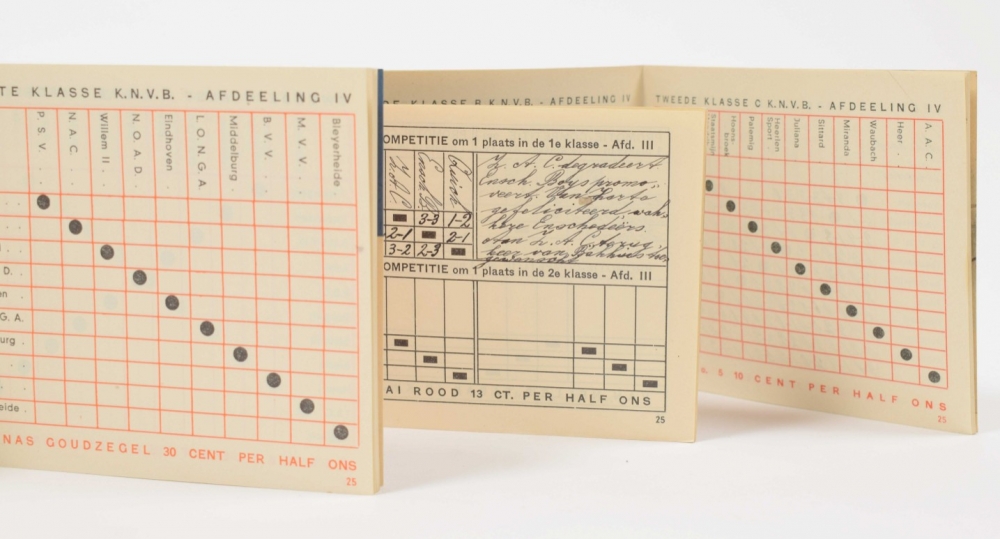 TE KLASSE K.N.V.B. - AFDEELING IV
P. S. V.
N. A. C.
Willem II
N. O. A. D.
Eindhoven
L. O. N. G. A.
Middelburg
B. V. V.
M. V. V.
Bleyerheide
D.
en
G. A.
urg
eide
NAS GOUDZEGEL 30 CENT PER HALF ONS
25
DE KLASSE B K.N.V.B. - AFDEELING IV
OMPETITIE om 1 plaats in de 1e klasse - Afd. III
Z.A.C.
Ensch. B.
Quick
Z. A. C. degradeert
Ensch. Boys promo-
veert. Van harte
gefeliciteerd, wak-
kere Enschedéers.
3-3 1-2
2-1 2-1
3-2 2-3
OMPETITIE om 1 plaats in de 2e klasse - Afd. III
AI ROOD 13 CT. PER HALF ONS
25
TWEEDE KLASSE C K.N.V.B. - AFDEELING IV
Staatsmijnen
Hoens-
broek
Palemig
Heerlen
Sport
Juliana
Sittard
Miranda
Waubach
Heer
A. A. C.
5 10 CENT PER HALF ONS
25